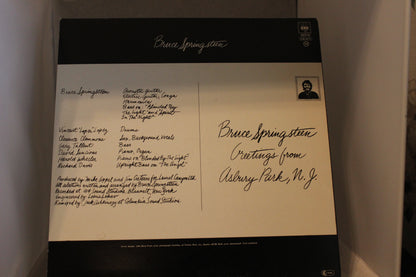 Bruce Springsteen
Bruce Springsteen
Acoustic Guitar
Electric Guitar, Congas
Harmonica
Bass on "Blinded By
The Light" and "Spirit
In The Night"
Vincent "Loper" Lopez Drums
Clarence Clemmons Sax, Background Vocals
Gary Tallent Bass
David Sancious Piano, Organ
Harold Wheeler Piano on "Blinded By The Light"
Richard Davis Upright Bass on "The Angel"
Produced by Mike Appel and Jim Cretecos for Laurel Canyon Ltd.
All selections written and arranged by Bruce Springsteen
Recorded at 914 Sound Studios, Blauvelt, New York
Engineered by Louis Lahav
Remixed by Jack Ashkinazy at Columbia Sound Studios
Bruce Springsteen
Greetings from
Asbury Park, N.J.